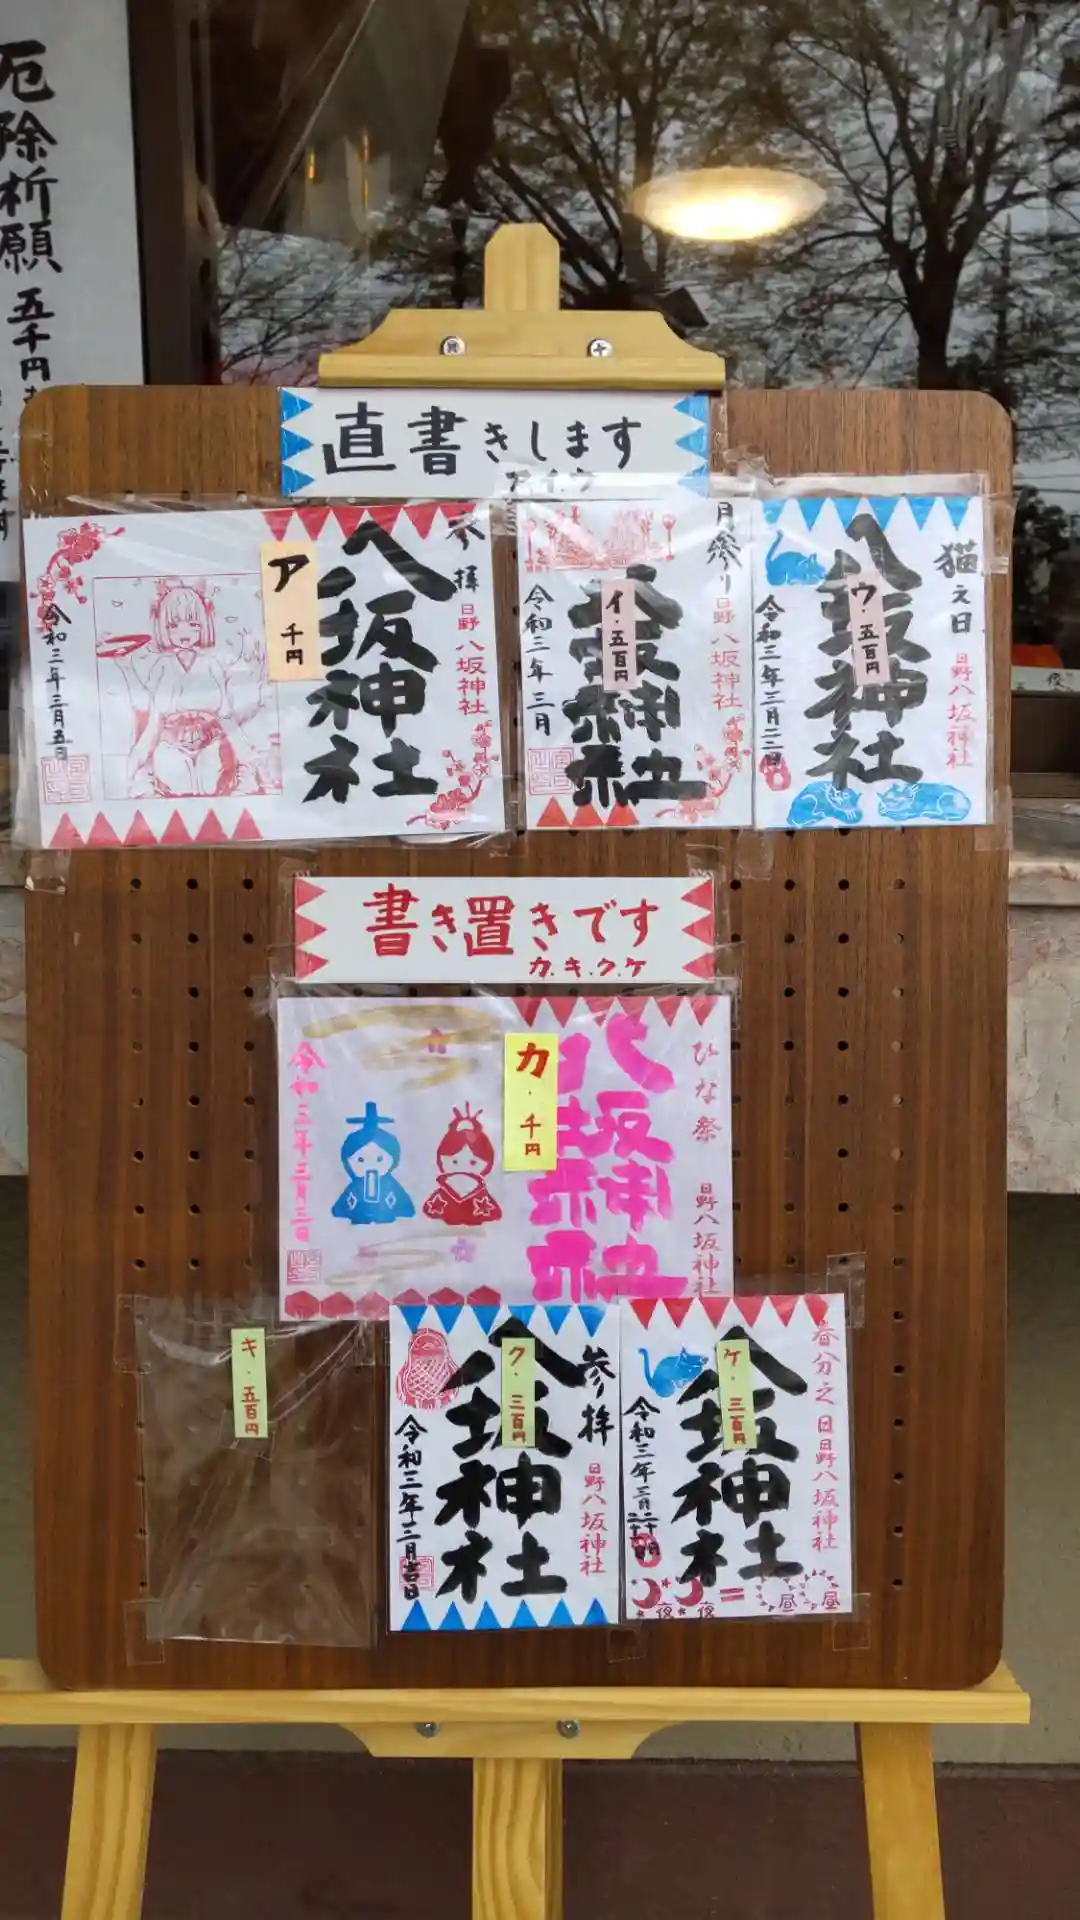 厄除祈願 五千円
直書きします
ア.イ.ウ
奉拝
日野八坂神社
八坂神社
ア 千円
令和三年三月五日
月参り
日野八坂神社
八坂神社
イ・五百円
令和三年 三月
猫之日
日野八坂神社
八坂神社
ウ・五百円
令和三年三月二二日
書き置きです
カ.キ.ク.ケ
ひな祭
日野八坂神社
八坂神社
カ・千円
令和三年三月三日
キ・五百円
参拝
日野八坂神社
八坂神社
ク・三百円
令和三年三月吉日
春分之日
日野八坂神社
八坂神社
ケ・三百円
令和三年三月二十日
夜 夜 = 昼 昼